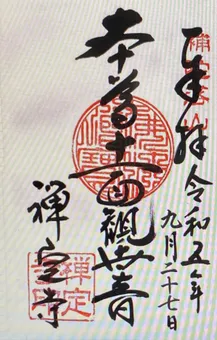 奉拝 令和五年
九月二十七日
本尊十一面觀世音
禅定寺
禅定